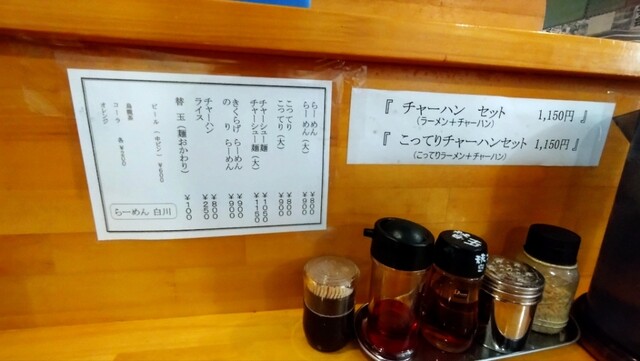 らーめん ￥800
らーめん(大) ￥900
こってり ￥800
こってり(大) ￥900
チャーシュー麺 ￥1050
チャーシュー麺(大) ￥1150
きくらげ らーめん ￥900
のり らーめん ￥900
チャーハン ￥800
ライス ￥250
替玉(麺おかわり) ￥100
ビール(中ビン) ￥600
烏龍茶
コーラ 各￥200
オレンジ
らーめん 白川
『 チャーハン セット 1,150円 』
(ラーメン+チャーハン)
『 こってりチャーハンセット 1,150円 』
(こってりラーメン+チャーハン)